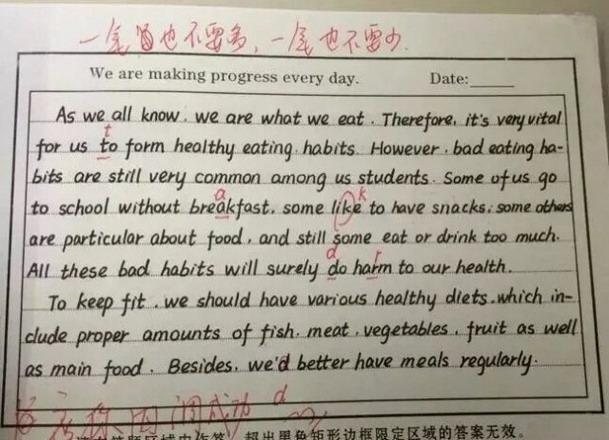 一尾也不要多,一尾也不要少.
We are making progress every day. Date:
As we all know, we are what we eat. Therefore, it's very vital
t
for us to form healthy eating habits. However, bad eating ha-
bits are still very common among us students. Some of us go
a k
to school without breakfast, some like to have snacks, some others
are particular about food, and still some eat or drink too much.
d r
All these bad habits will surely do harm to our health.
To keep fit, we should have various healthy diets, which in-
clude proper amounts of fish, meat, vegetables, fruit as well
as main food. Besides, we'd better have meals regularly.
d
答题区域内作答,超出黑色矩形边框限定区域的答案无效。